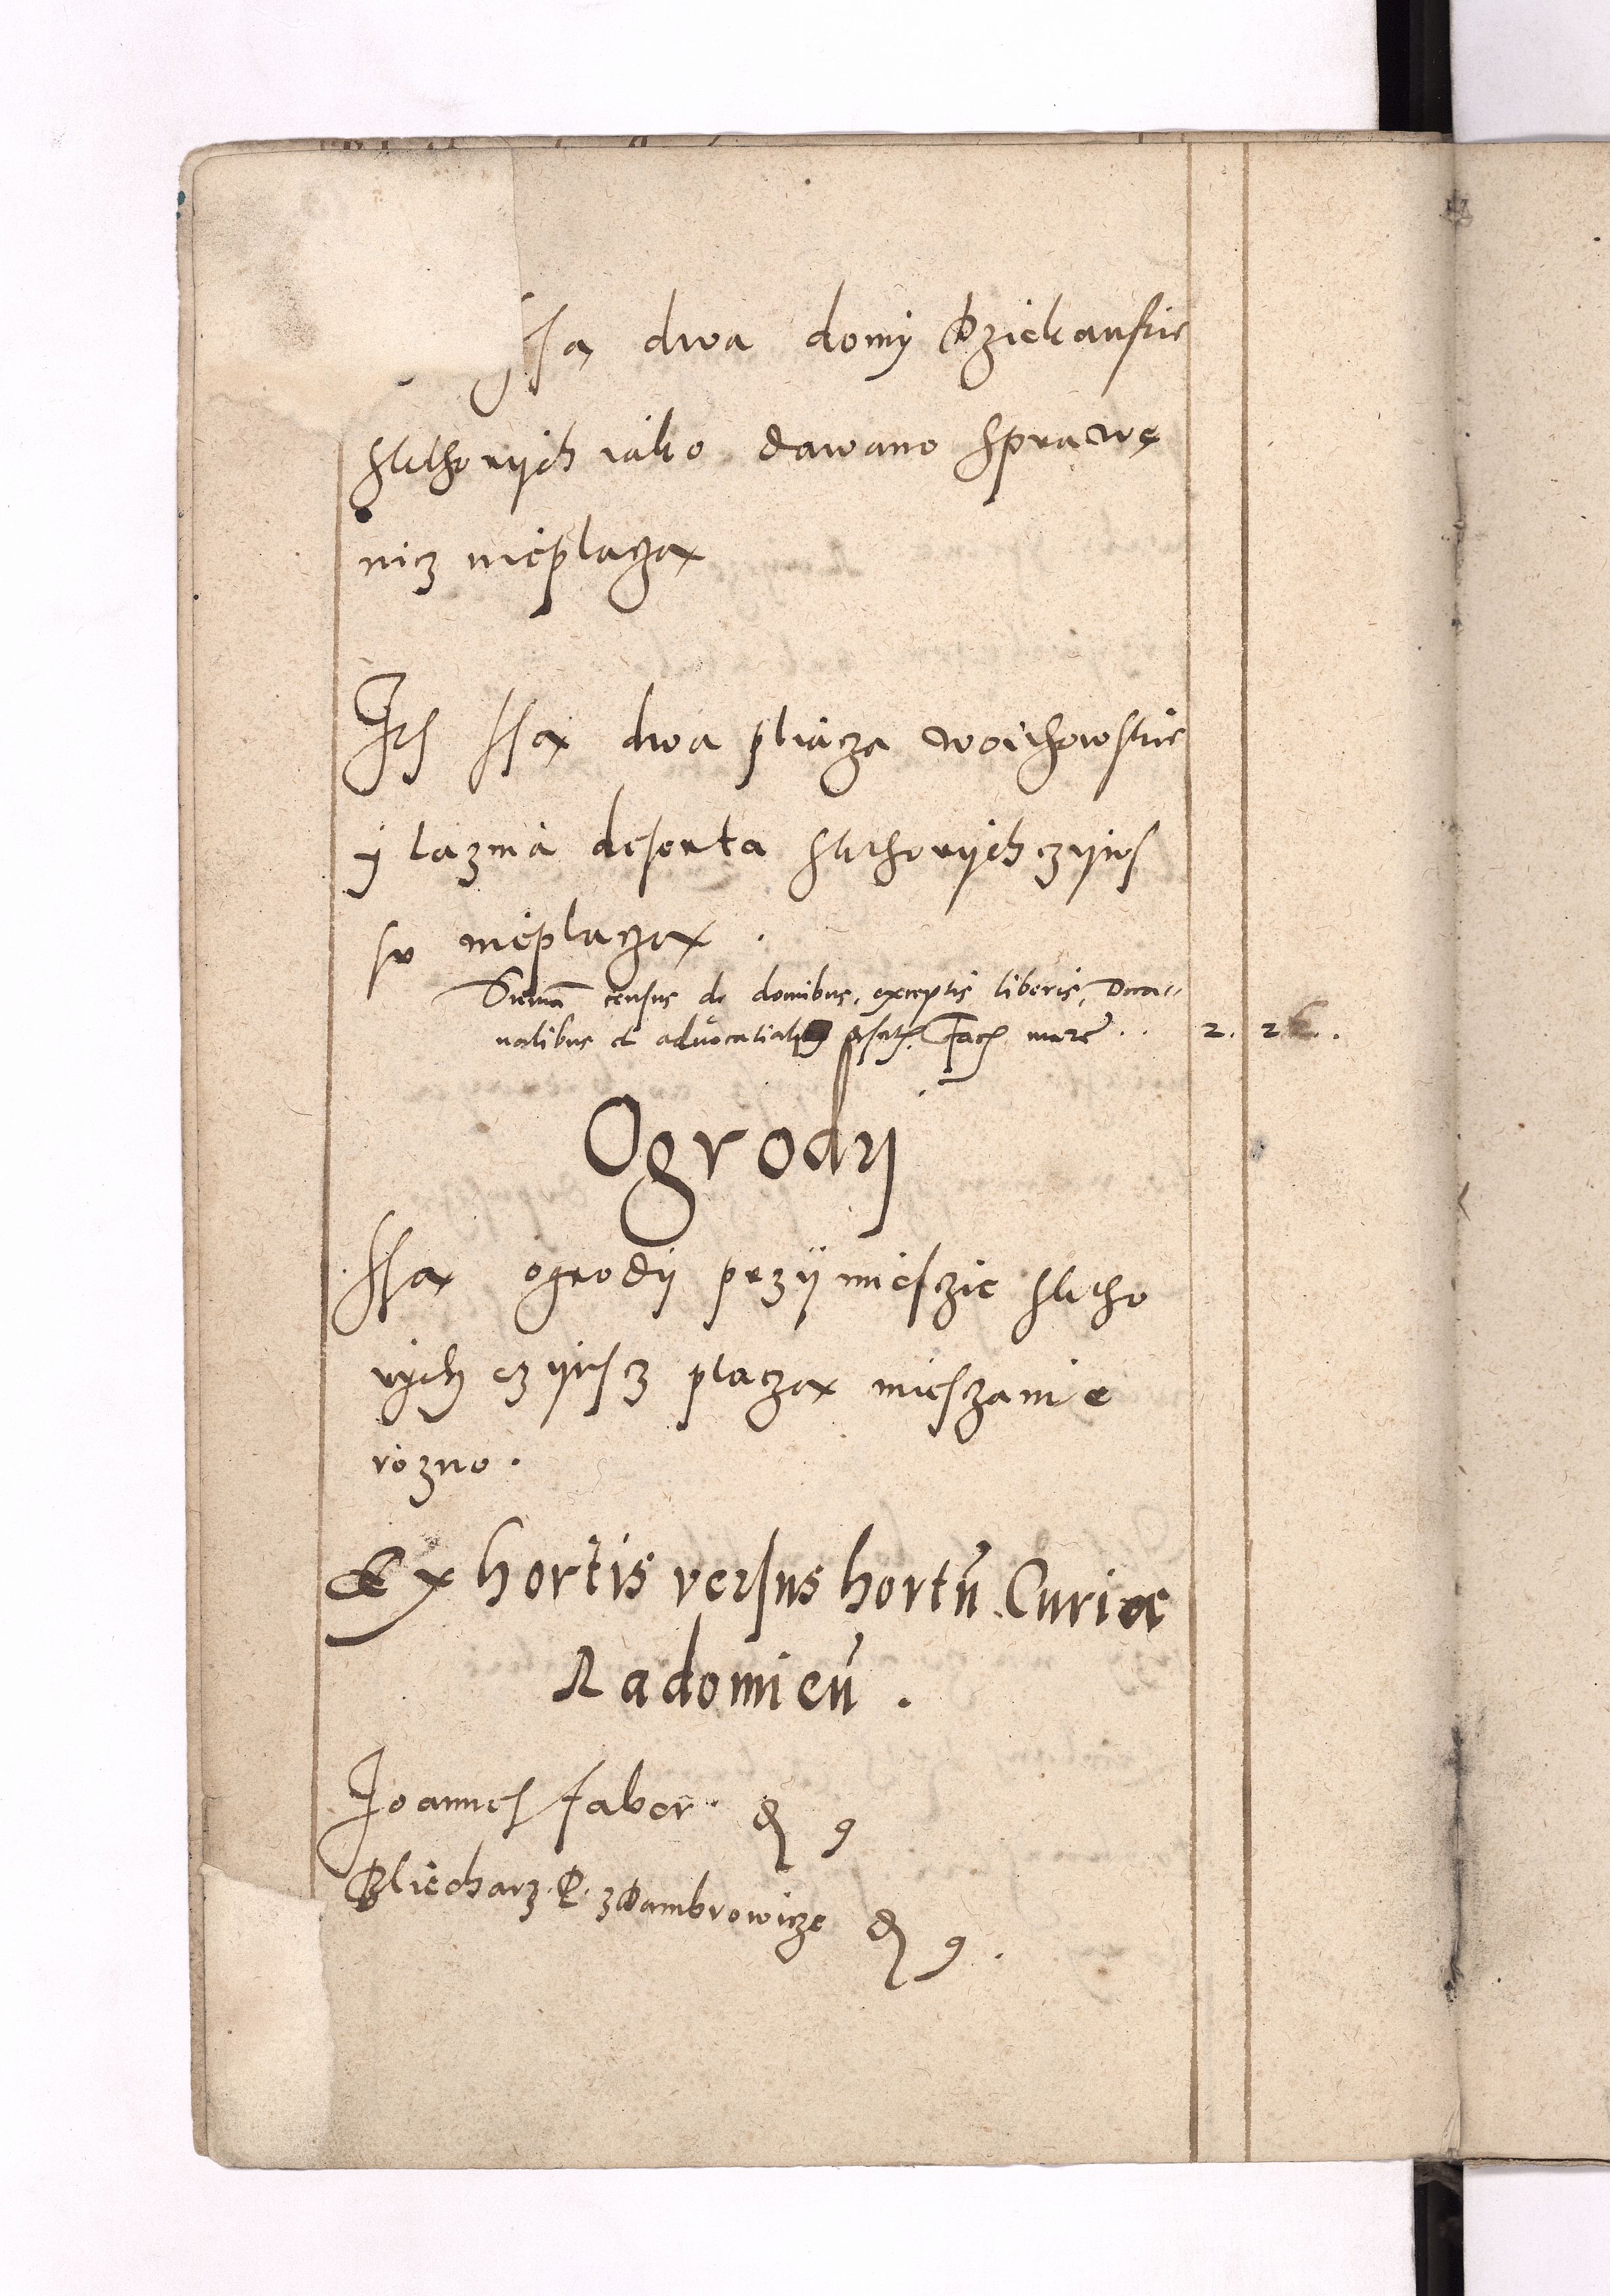 ssą dwa domy Dziekanskie
skthorych iako dawano sprawę
nicz nieplaczą
Jtē ssą dwa pliacza woithowskie
y lazmia deserta sktorych czyns
su nieplaczą.
Suma census de domibus, exceptis liberis, Deca-
nalibus et advocatialib Facit marc̄ .. 2. 26.
Ogrody
Ssą ogrody przy miesczie sktho
rych czynsz placzą miesczanie
rozno.
Ex hortis versus hortū Curiæ
Radomieū.
Joannes faber d 9
Bliecharz P. z Dambrowicze d 9.